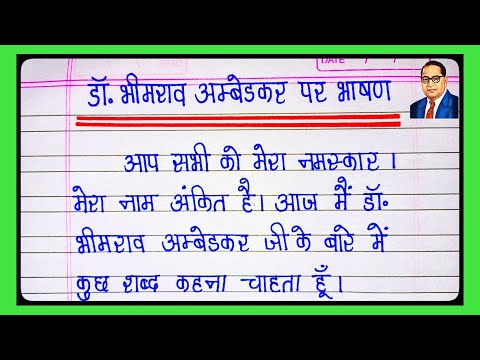 DATE
डॉ. भीमराव अम्बेडकर पर भाषण
आप सभी को मेरा नमस्कार ।
मेरा नाम अंकित है। आज मैं डॉ.
भीमराव अम्बेडकर जी के बारे में
कुछ शब्द कहना चाहता हूँ ।